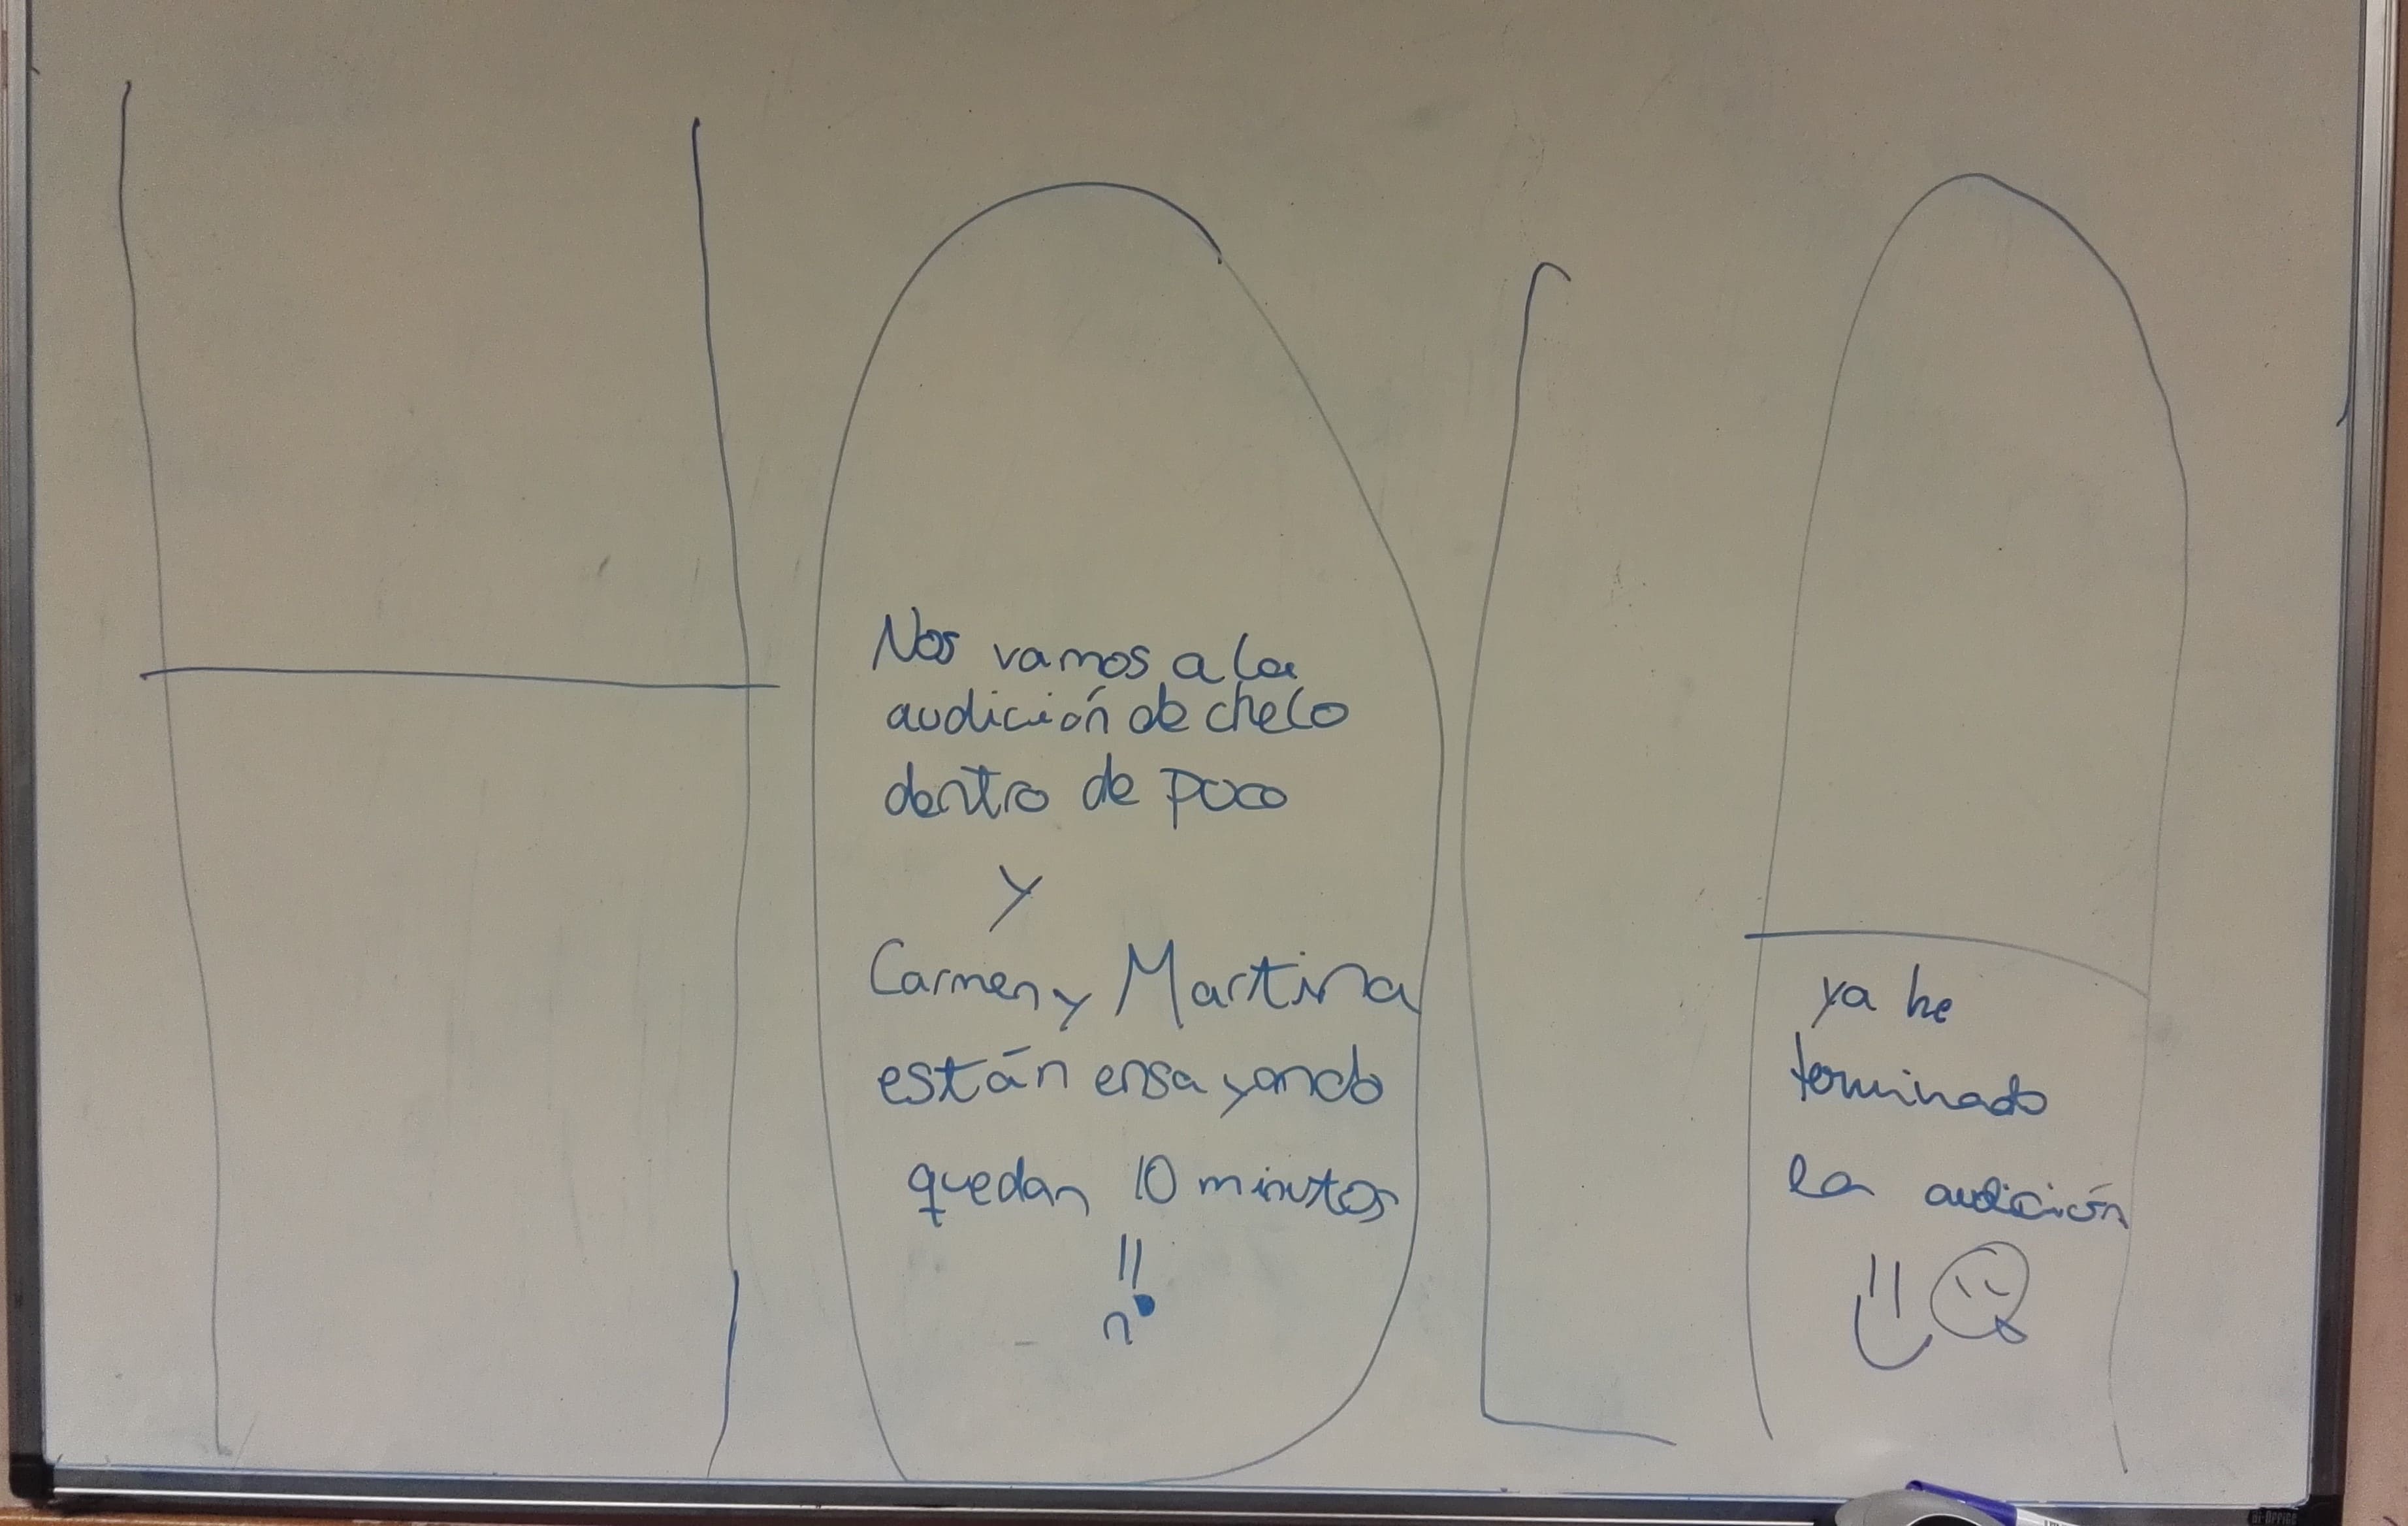 HOLA
Nos vamos a la
audición de chelo
dentro de poco
y
Carmen y Martina
están ensayando
quedan 10 minutos
!!
ya he
terminado
la audición
Bi-Office